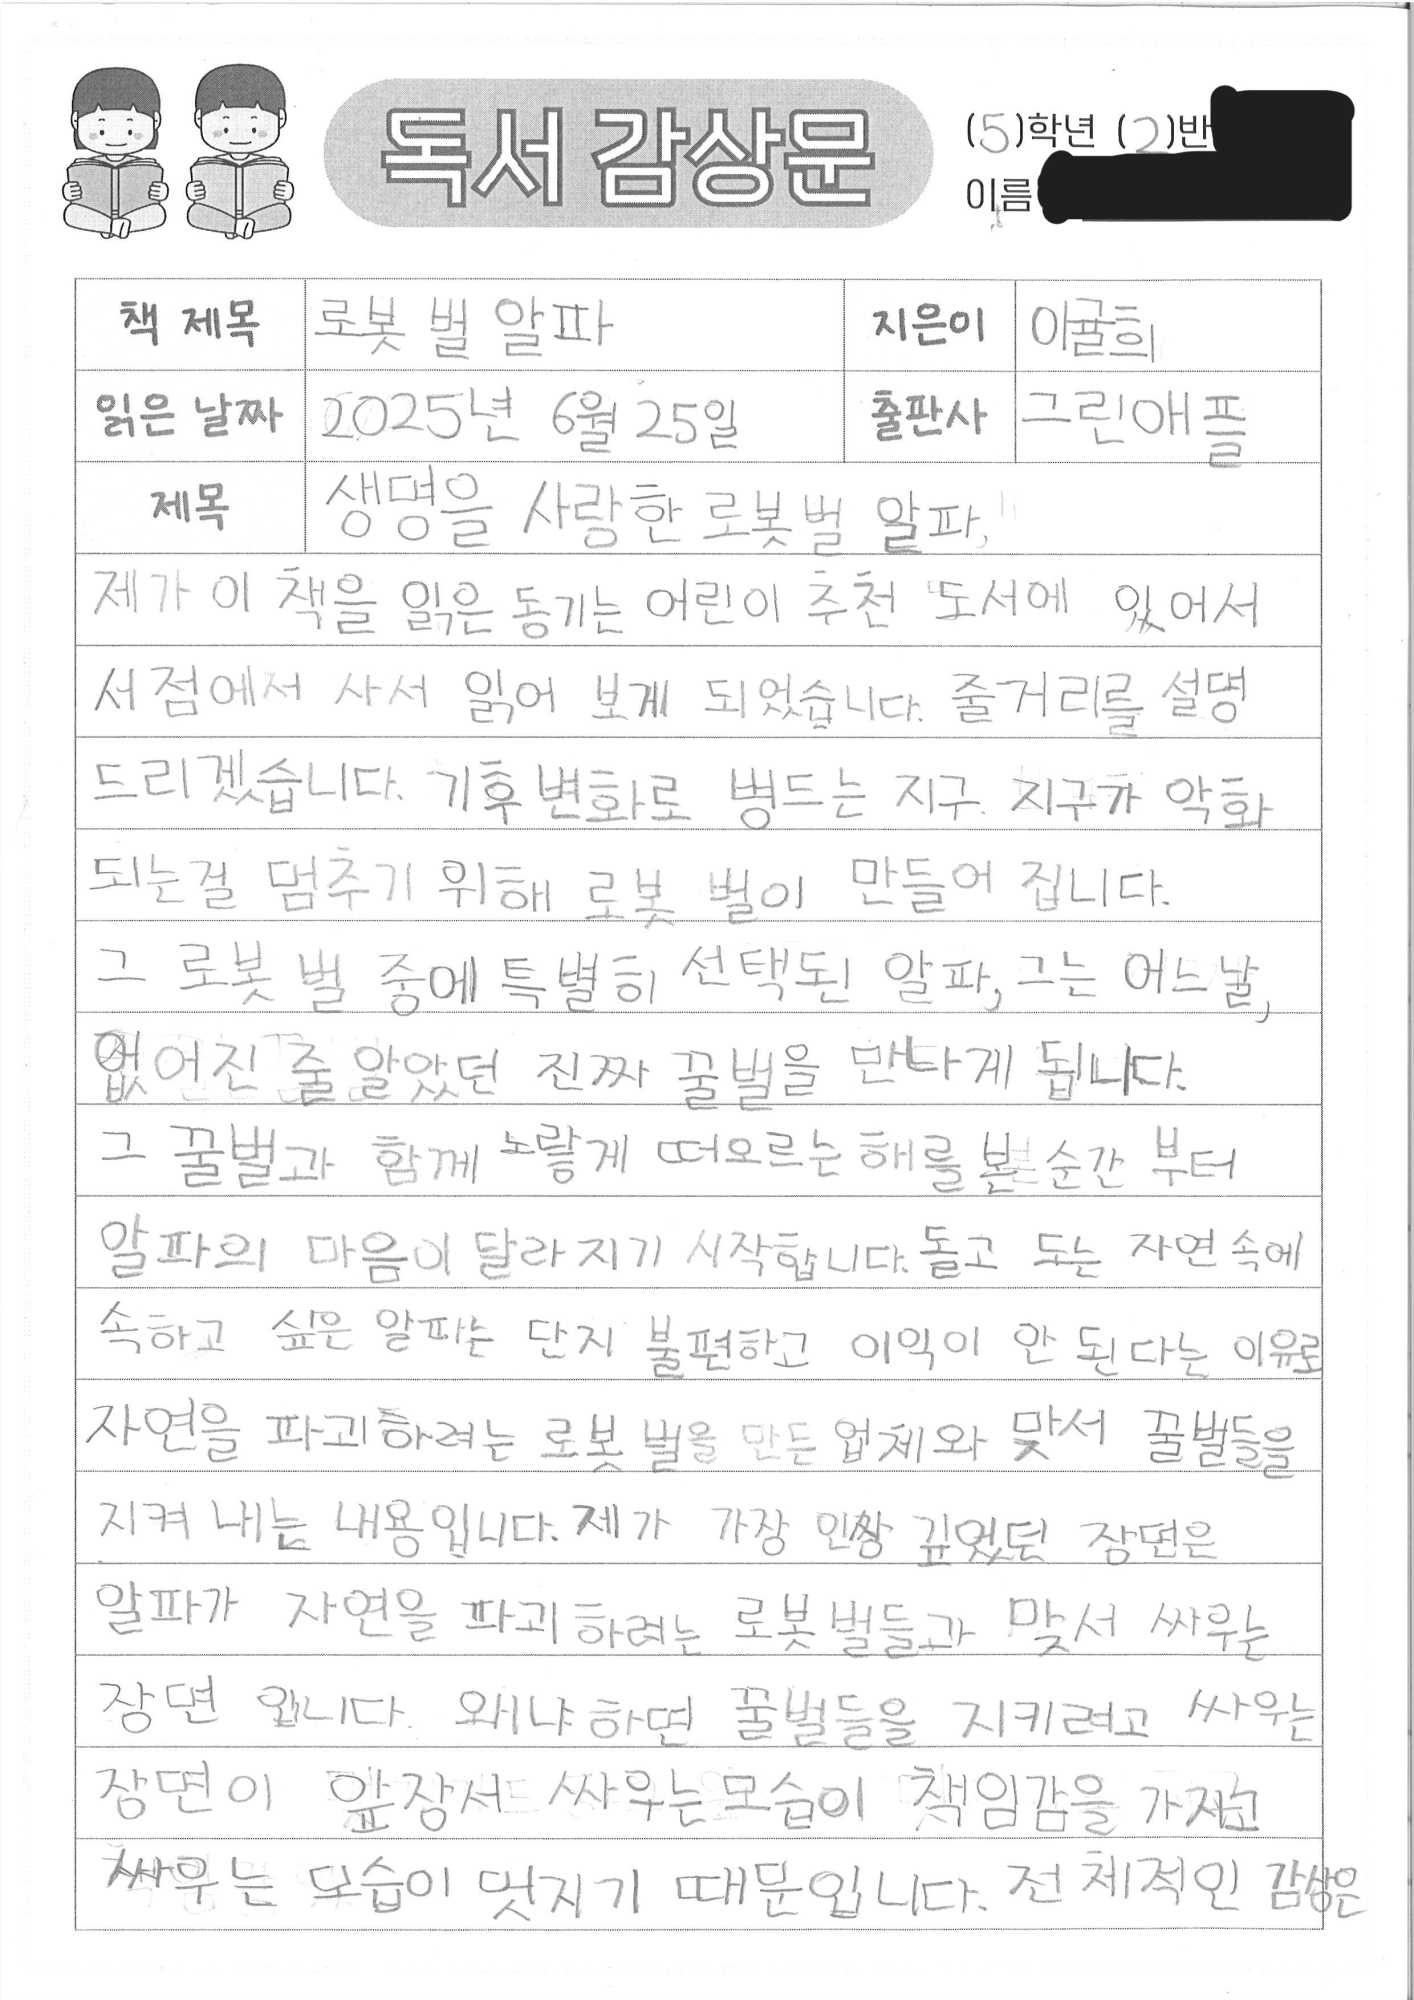 독서 감상문
(5)학년 (2)반
이름
책 제목 로봇 벌 알파 지은이 이귤희
읽은 날짜 2025년 6월 25일 출판사 그린애플
제목 생명을 사랑한 로봇벌 알파,
제가 이 책을 읽은 동기는 어린이 추천 도서에 있어서
서점에서 사서 읽어 보게 되었습니다. 줄거리를 설명
드리겠습니다. 기후변화로 병드는 지구. 지구가 악화
되는걸 멈추기 위해 로봇 벌이 만들어 집니다.
그 로봇 벌 중에 특별히 선택된 알파, 그는 어느날,
없어진 줄 알았던 진짜 꿀벌을 만나게 됩니다.
그 꿀벌과 함께 노랗게 떠오르는 해를 본 순간 부터
알파의 마음이 달라 지기 시작합니다. 돌고 도는 자연 속에
속하고 싶은 알파는 단지 불편하고 이익이 안 된다는 이유로
자연을 파괴하려는 로봇 벌을 만든 업체와 맞서 꿀벌들을
지켜 내는 내용입니다. 제가 가장 인상 깊었던 장면은
알파가 자연을 파괴하려는 로봇 벌들과 맞서 싸우는
장면 입니다. 왜냐하면 꿀벌들을 지키려고 싸우는
장면이 앞장서 싸우는 모습이 책임감을 가지고
싸우는 모습이 멋지기 때문입니다. 전체적인 감상은